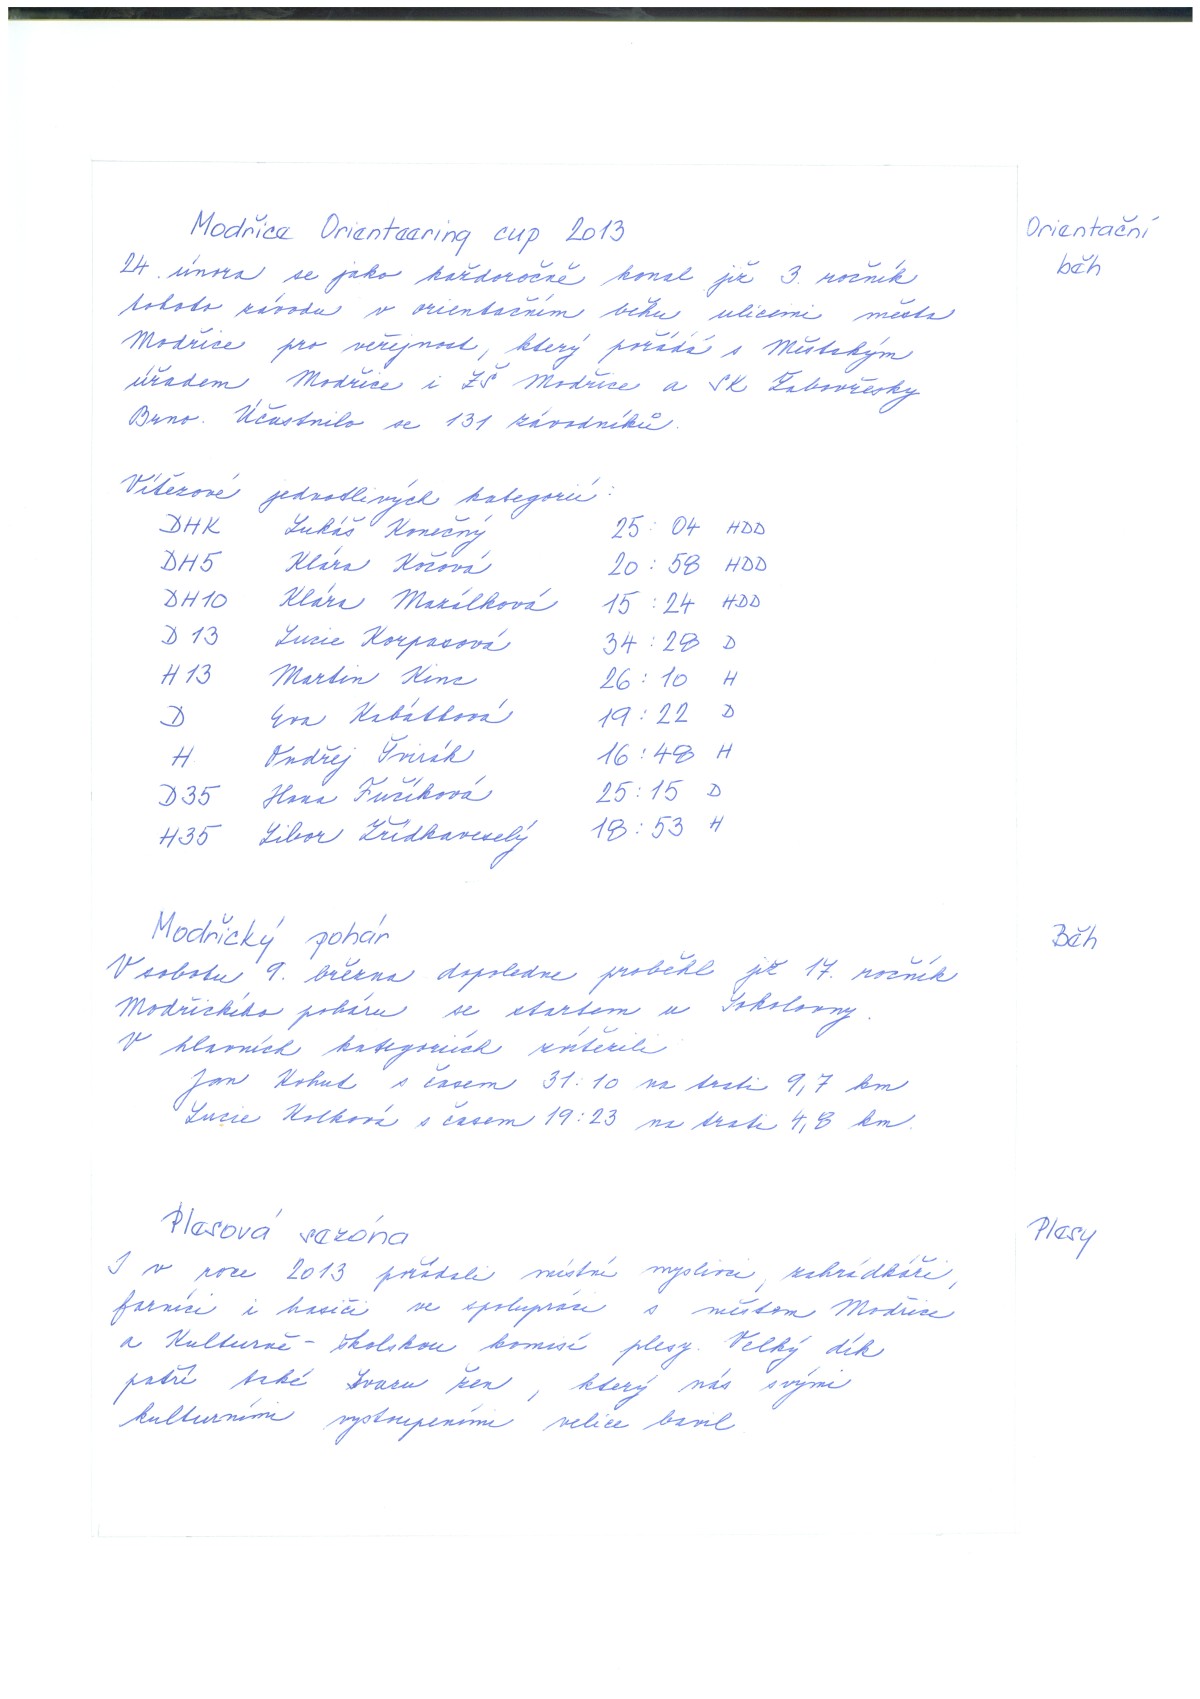 Modřice Orienteering cup 2013
Orientační
běh
24. února se jako každoročně konal již 3. ročník
tohoto závodu v orientačním běhu ulicemi města
Modřice pro veřejnost, který pořádá s Městským
úřadem Modřice i ZŠ Modřice a SK Žabovřesky
Brno. Účastnilo se 131 závodníků.
Vítězové jednotlivých kategorií:
DHK Lukáš Konečný 25:04 HDD
DH5 Klára Kočová 20:58 HDD
DH10 Klára Mazálková 15:24 HDD
D13 Lucie Korpasová 34:28 D
H13 Martin Kinc 26:10 H
D Eva Kabátková 19:22 D
H Ondřej Švirák 16:48 H
D35 Hana Fučíková 25:15 D
H35 Libor Zřídkaveselý 18:53 H
Modřický pohár
Běh
V sobotu 9. března dopoledne proběhl již 17. ročník
Modřického poháru se startem u Sokolovny.
V hlavních kategoriích zvítězili
Jan Kohut s časem 31:10 na trati 9,7 km
Lucie Kolková s časem 19:23 na trati 4,8 km.
Plesová sezóna
Plesy
I v roce 2013 pořádali místní myslivci, zahrádkáři,
farníci i hasiči ve spolupráci s městem Modřice
a Kulturně-školskou komisí plesy. Velký dík
patří také Svazu žen, který nás svými
kulturními vystoupeními velice bavil